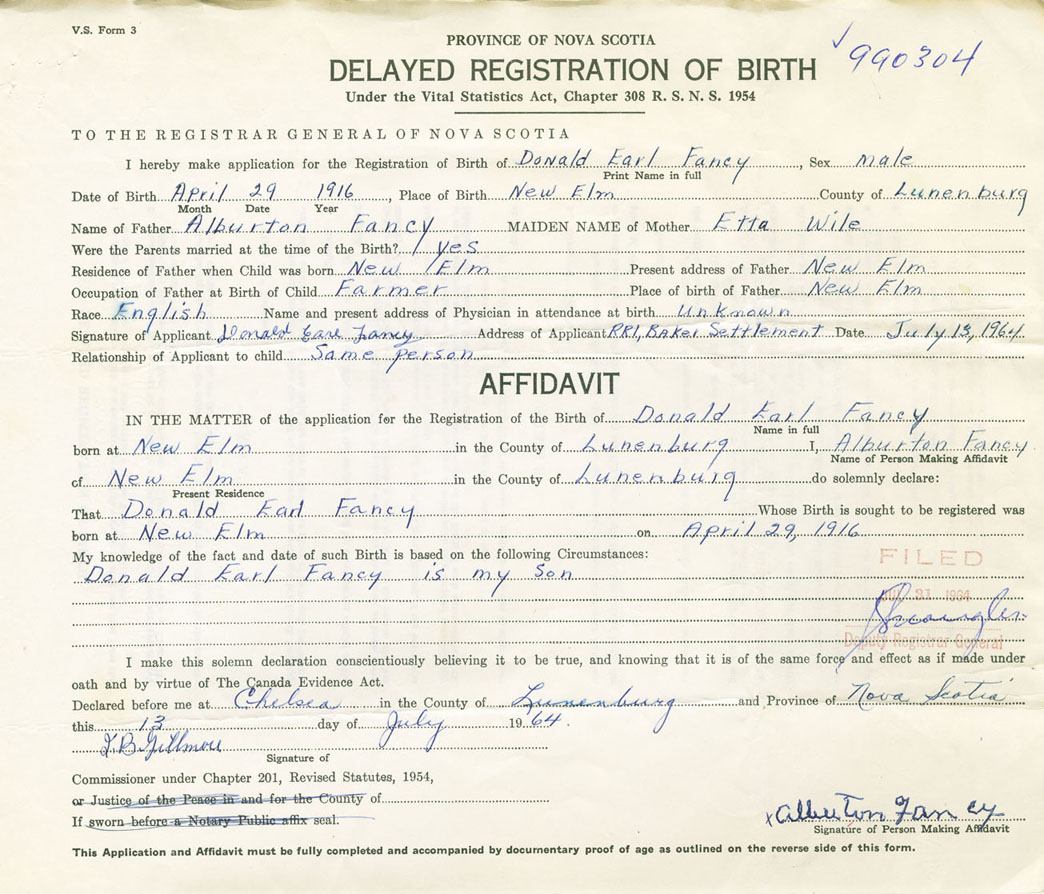 V.S. Form 3
PROVINCE OF NOVA SCOTIA
990304
DELAYED REGISTRATION OF BIRTH
Under the Vital Statistics Act, Chapter 308 R. S. N. S. 1954
TO THE REGISTRAR GENERAL OF NOVA SCOTIA
I hereby make application for the Registration of Birth of Donald Earl Fancy, Sex male
Print Name in full
Date of Birth April 29 1916, Place of Birth New Elm County of Lunenburg
Month Date Year
Name of Father Alburton Fancy MAIDEN NAME of Mother Etta Wile
Were the Parents married at the time of the Birth? yes
Residence of Father when Child was born New Elm Present address of Father New Elm
Occupation of Father at Birth of Child Farmer Place of birth of Father New Elm
Race English Name and present address of Physician in attendance at birth Unknown
Signature of Applicant Donald Earl Fancy Address of Applicant RR1, Baker Settlement Date July 13, 1964
Relationship of Applicant to child Same person
AFFIDAVIT
IN THE MATTER of the application for the Registration of the Birth of Donald Earl Fancy
Name in full
born at New Elm in the County of Lunenburg I, Alburton Fancy
Name of Person Making Affidavit
of New Elm in the County of Lunenburg do solemnly declare:
Present Residence
That Donald Earl Fancy Whose Birth is sought to be registered was
born at New Elm on April 29, 1916
My knowledge of the fact and date of such Birth is based on the following Circumstances:
FILED
Donald Earl Fancy is my Son
31 1964
Deputy Registrar General
I make this solemn declaration conscientiously believing it to be true, and knowing that it is of the same force and effect as if made under
oath and by virtue of The Canada Evidence Act.
Declared before me at Chelsea in the County of Lunenburg and Province of Nova Scotia
this 13 day of July 1964.
Gillmore
Signature of
Commissioner under Chapter 201, Revised Statutes, 1954,
or Justice of the Peace in and for the County of
If sworn before a Notary Public affix seal.
x Alburton Fancy
Signature of Person Making Affidavit
This Application and Affidavit must be fully completed and accompanied by documentary proof of age as outlined on the reverse side of this form.